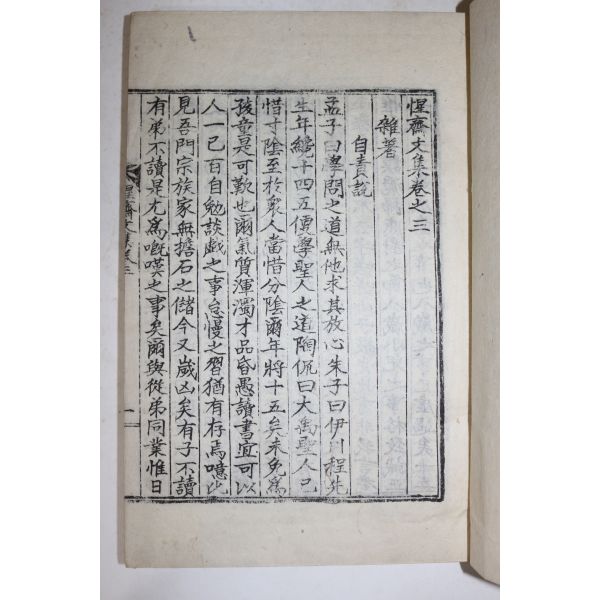 惺齋文集卷之三
雜著
自責說
孟子曰學問之道無他求其放心朱子曰伊川程先
生年纔十四五便學聖人之道陶侃曰大禹聖人已
惜寸陰至於衆人當惜分陰爾年將十五矣未免爲
孩童是可歎也爾氣質渾濁才品昏愚讀書宜可以
人一己百自勉談戱之事怠慢之習猶有存焉噫此
見吾門宗族家無擔石之儲今又歲凶矣有子不讀
有弟不讀是尤爲嘅嘆之事矣爾與從弟同業惟日
惺齋文集卷三
一